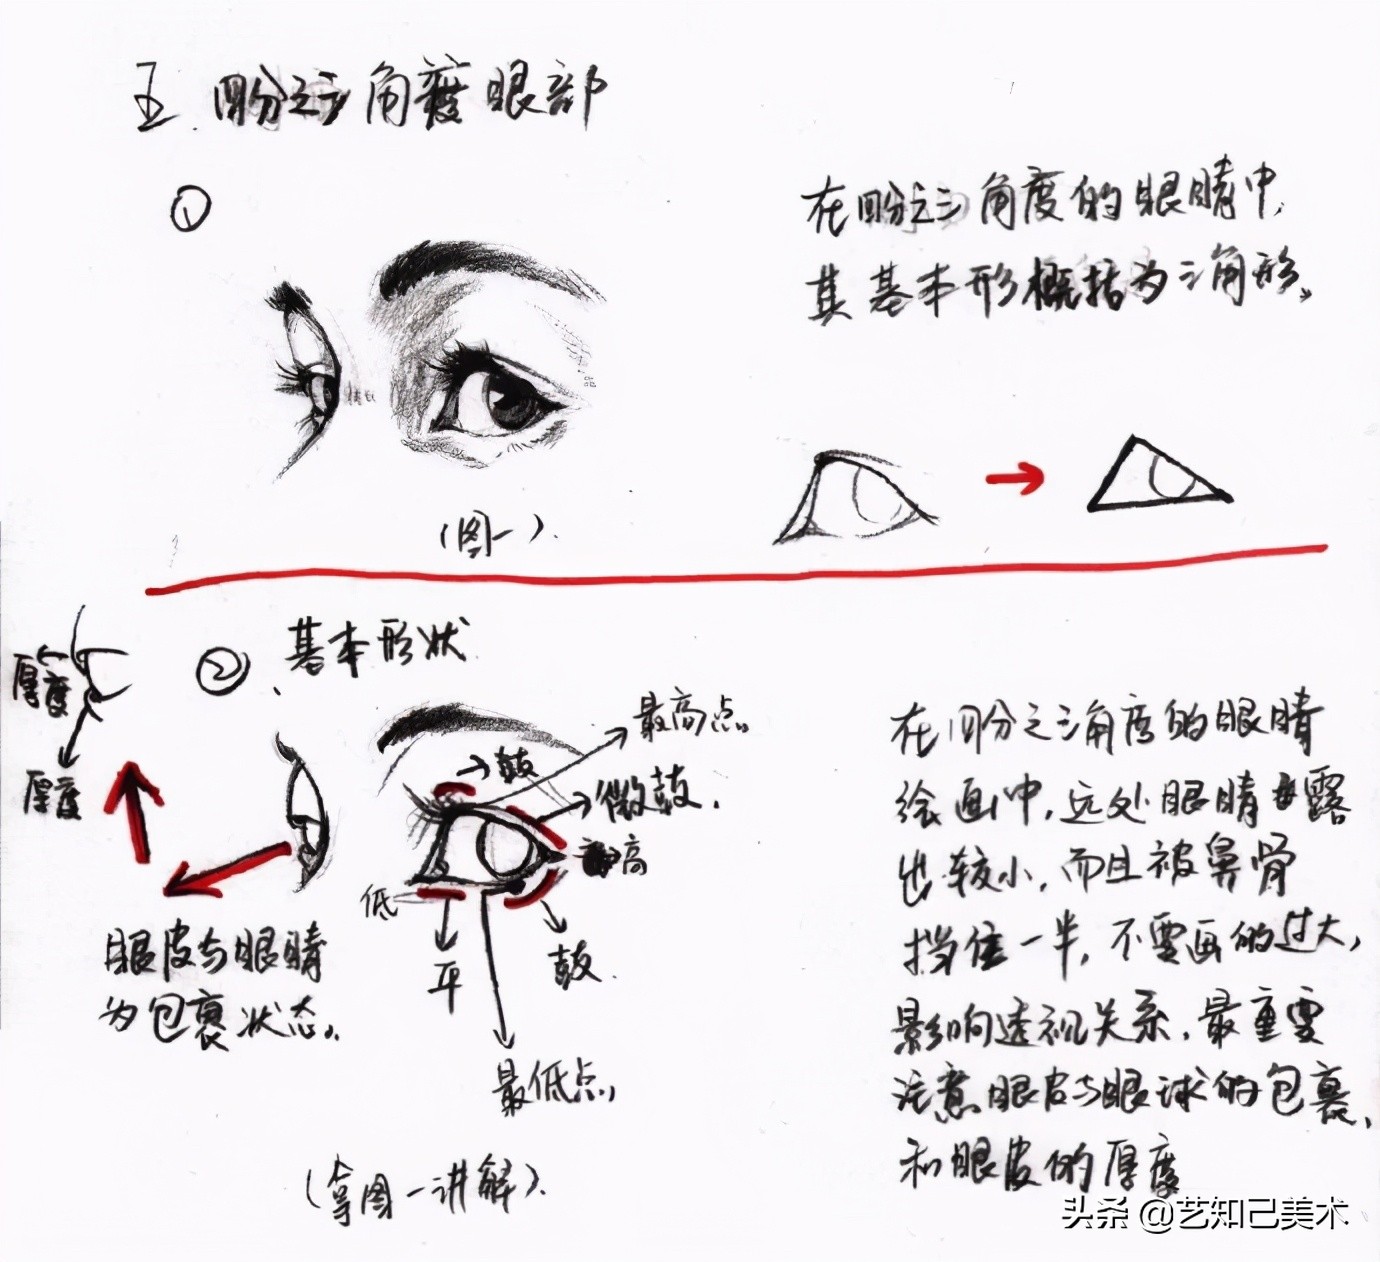 五.四分之三角度眼部
①
在四分之三角度的眼睛中,
其基本形概括为三角形。
(图一).
② 基本形状
厚度
厚度
最高点。
鼓
微鼓.
高
低
平
鼓.
最低点,
眼皮与眼睛
为包裹状态。
(拿图一讲解).
在四分之三角度的眼睛
绘画中,远处眼睛露
出较小,而且被鼻骨
挡住一半,不要画的过大,
影响透视关系,最重要
注意眼皮与眼球的包裹,
和眼皮的厚度
头条 @艺知己美术